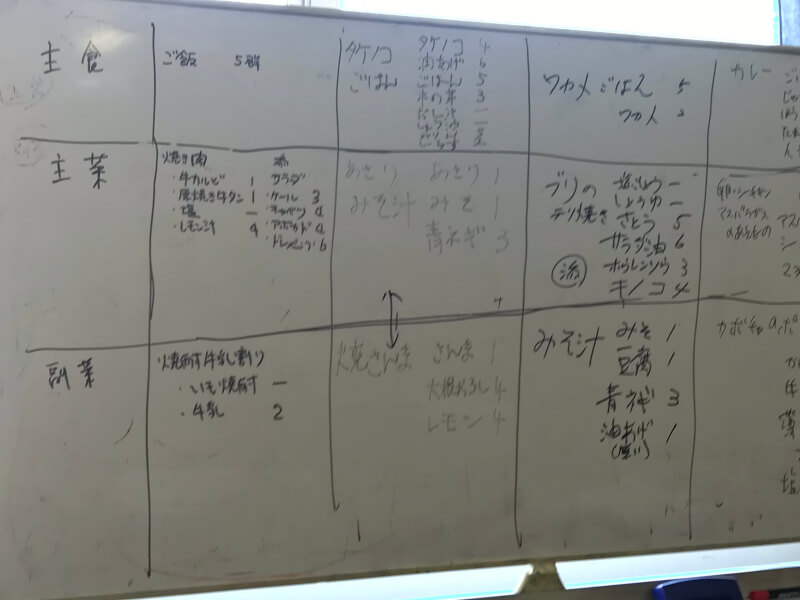 主食
ご飯 5群
タケノコ
ごはん
タケノコ 4
油あげ 6
ごはん 5
3
ワカメごはん 5
ワカメ 2
カレー
主菜
焼き肉
・牛カルビ 1
・厚焼き牛タン 1
・塩 ー
・レモン汁 4
添
サラダ
・ケール 3
・キャベツ 4
・アボカド 4
・ドレッシング 6
あさり
みそ汁
あさり 1
みそ 1
青ネギ 3
ブリの
テリ焼き
塩こしょう ー
しょうゆ ー
さとう 5
サラダ油 6
添
ホウレンソウ 3
キノコ 4
アスパラガス
副菜
焼酎牛乳割り
・いも焼酎 ー
・牛乳 2
焼さんま
さんま 1
大根おろし 4
レモン 4
みそ汁
みそ 1
豆腐 1
青ネギ 3
油あげ 1
カボチャの